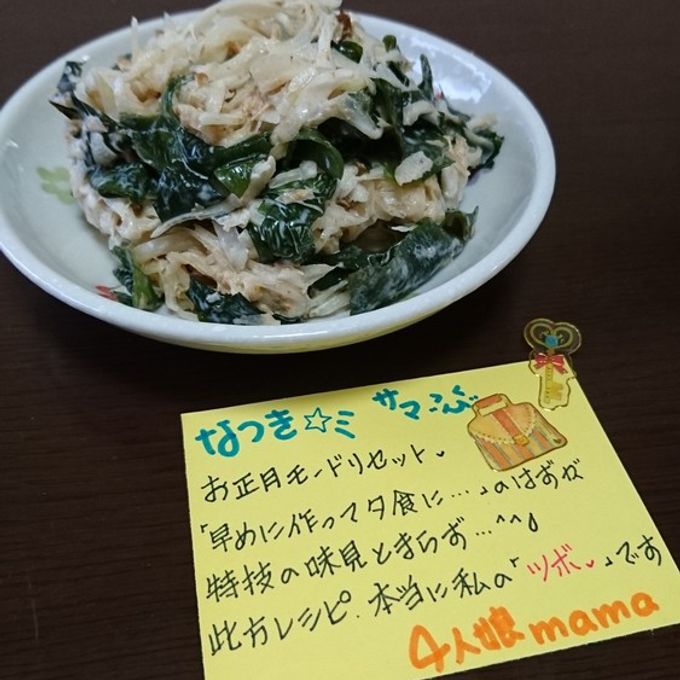 なつき☆ミ サマ
お正月モードリセット♥
「早めに作って夕食に…」のはずが
特技の味見とまらず…^^;
此方レシピ.本当に私の「ツボ♥」です
4人娘mama